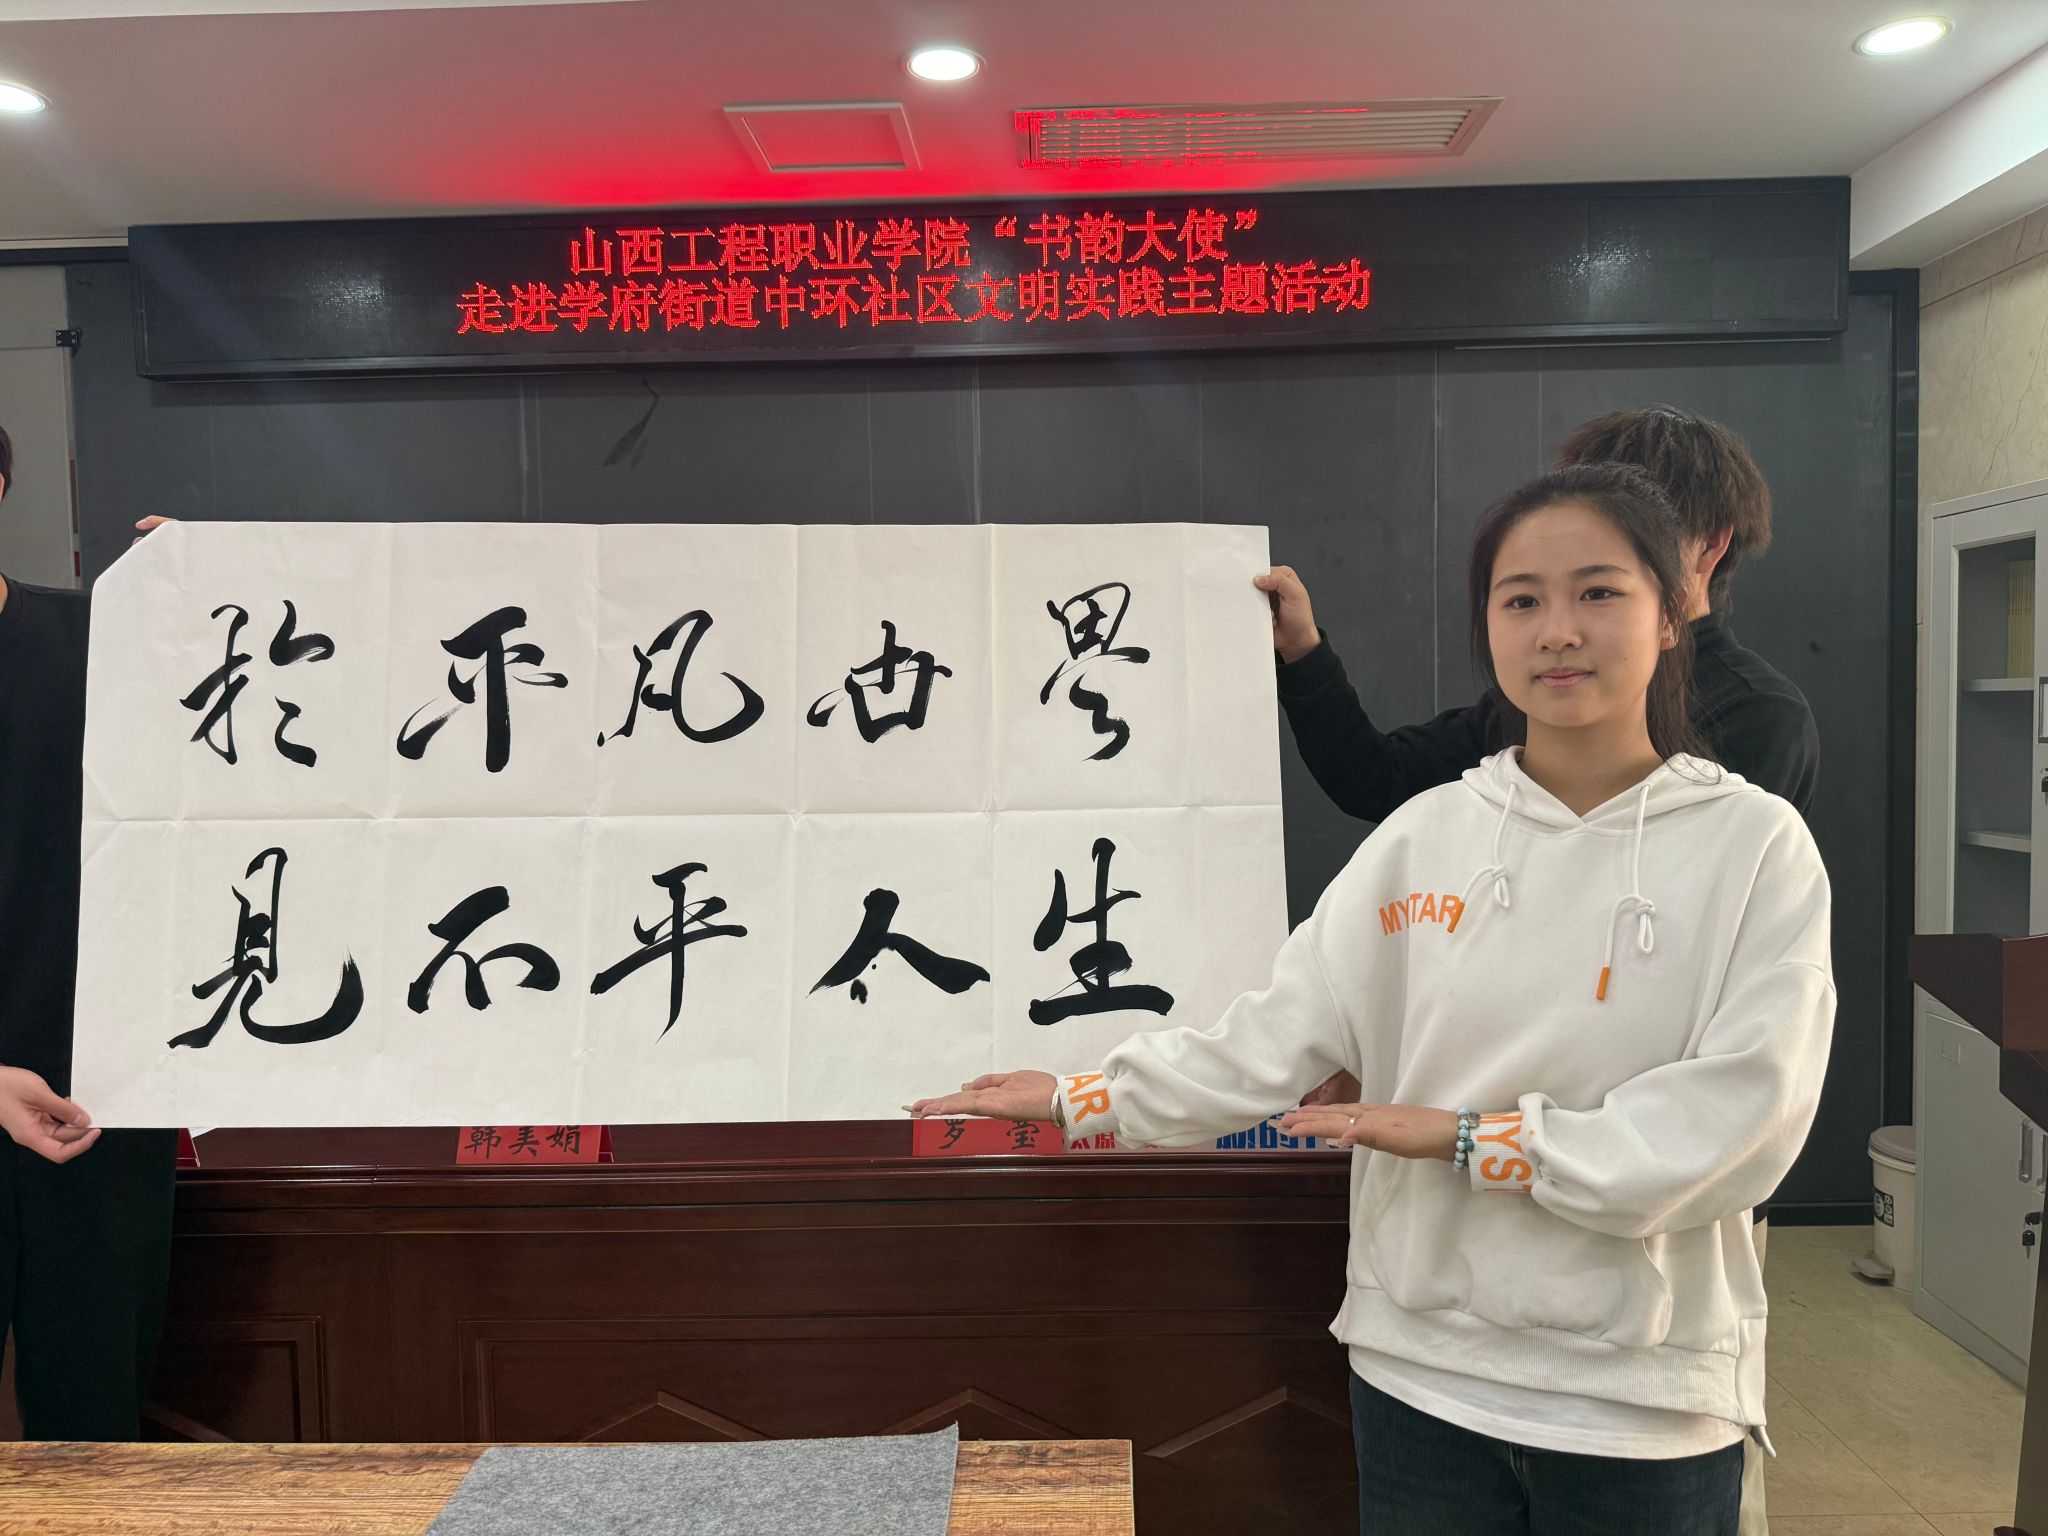 山西工程职业学院“书韵大使”
走进学府街道中环社区文明实践主题活动
於平凡世界
見不平人生
韩美娟
罗 莹
AR
MYS